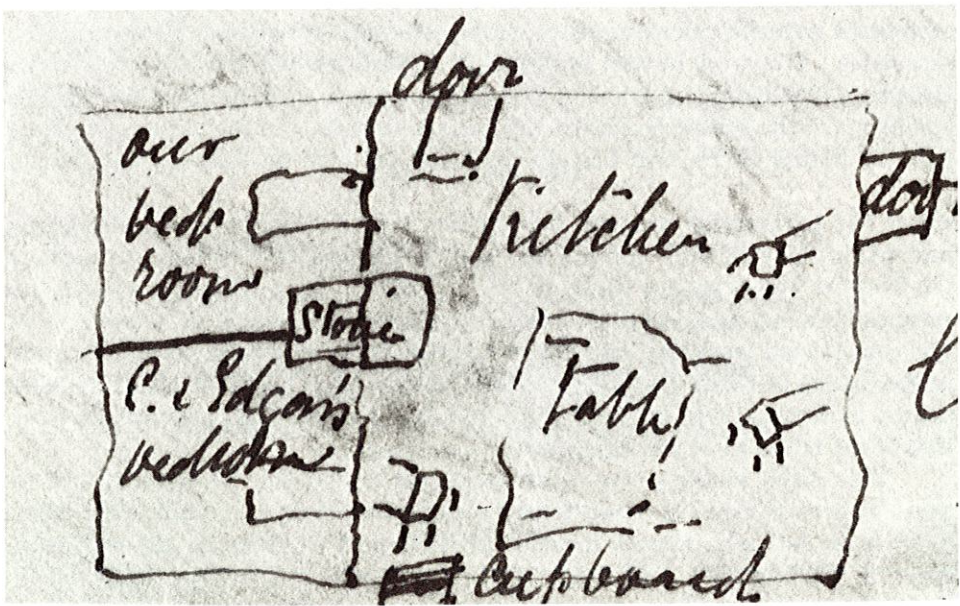 door
our
bed
room
Kitchen
door
Stove
E. & Edgar's
bedroom
Table
cupboard